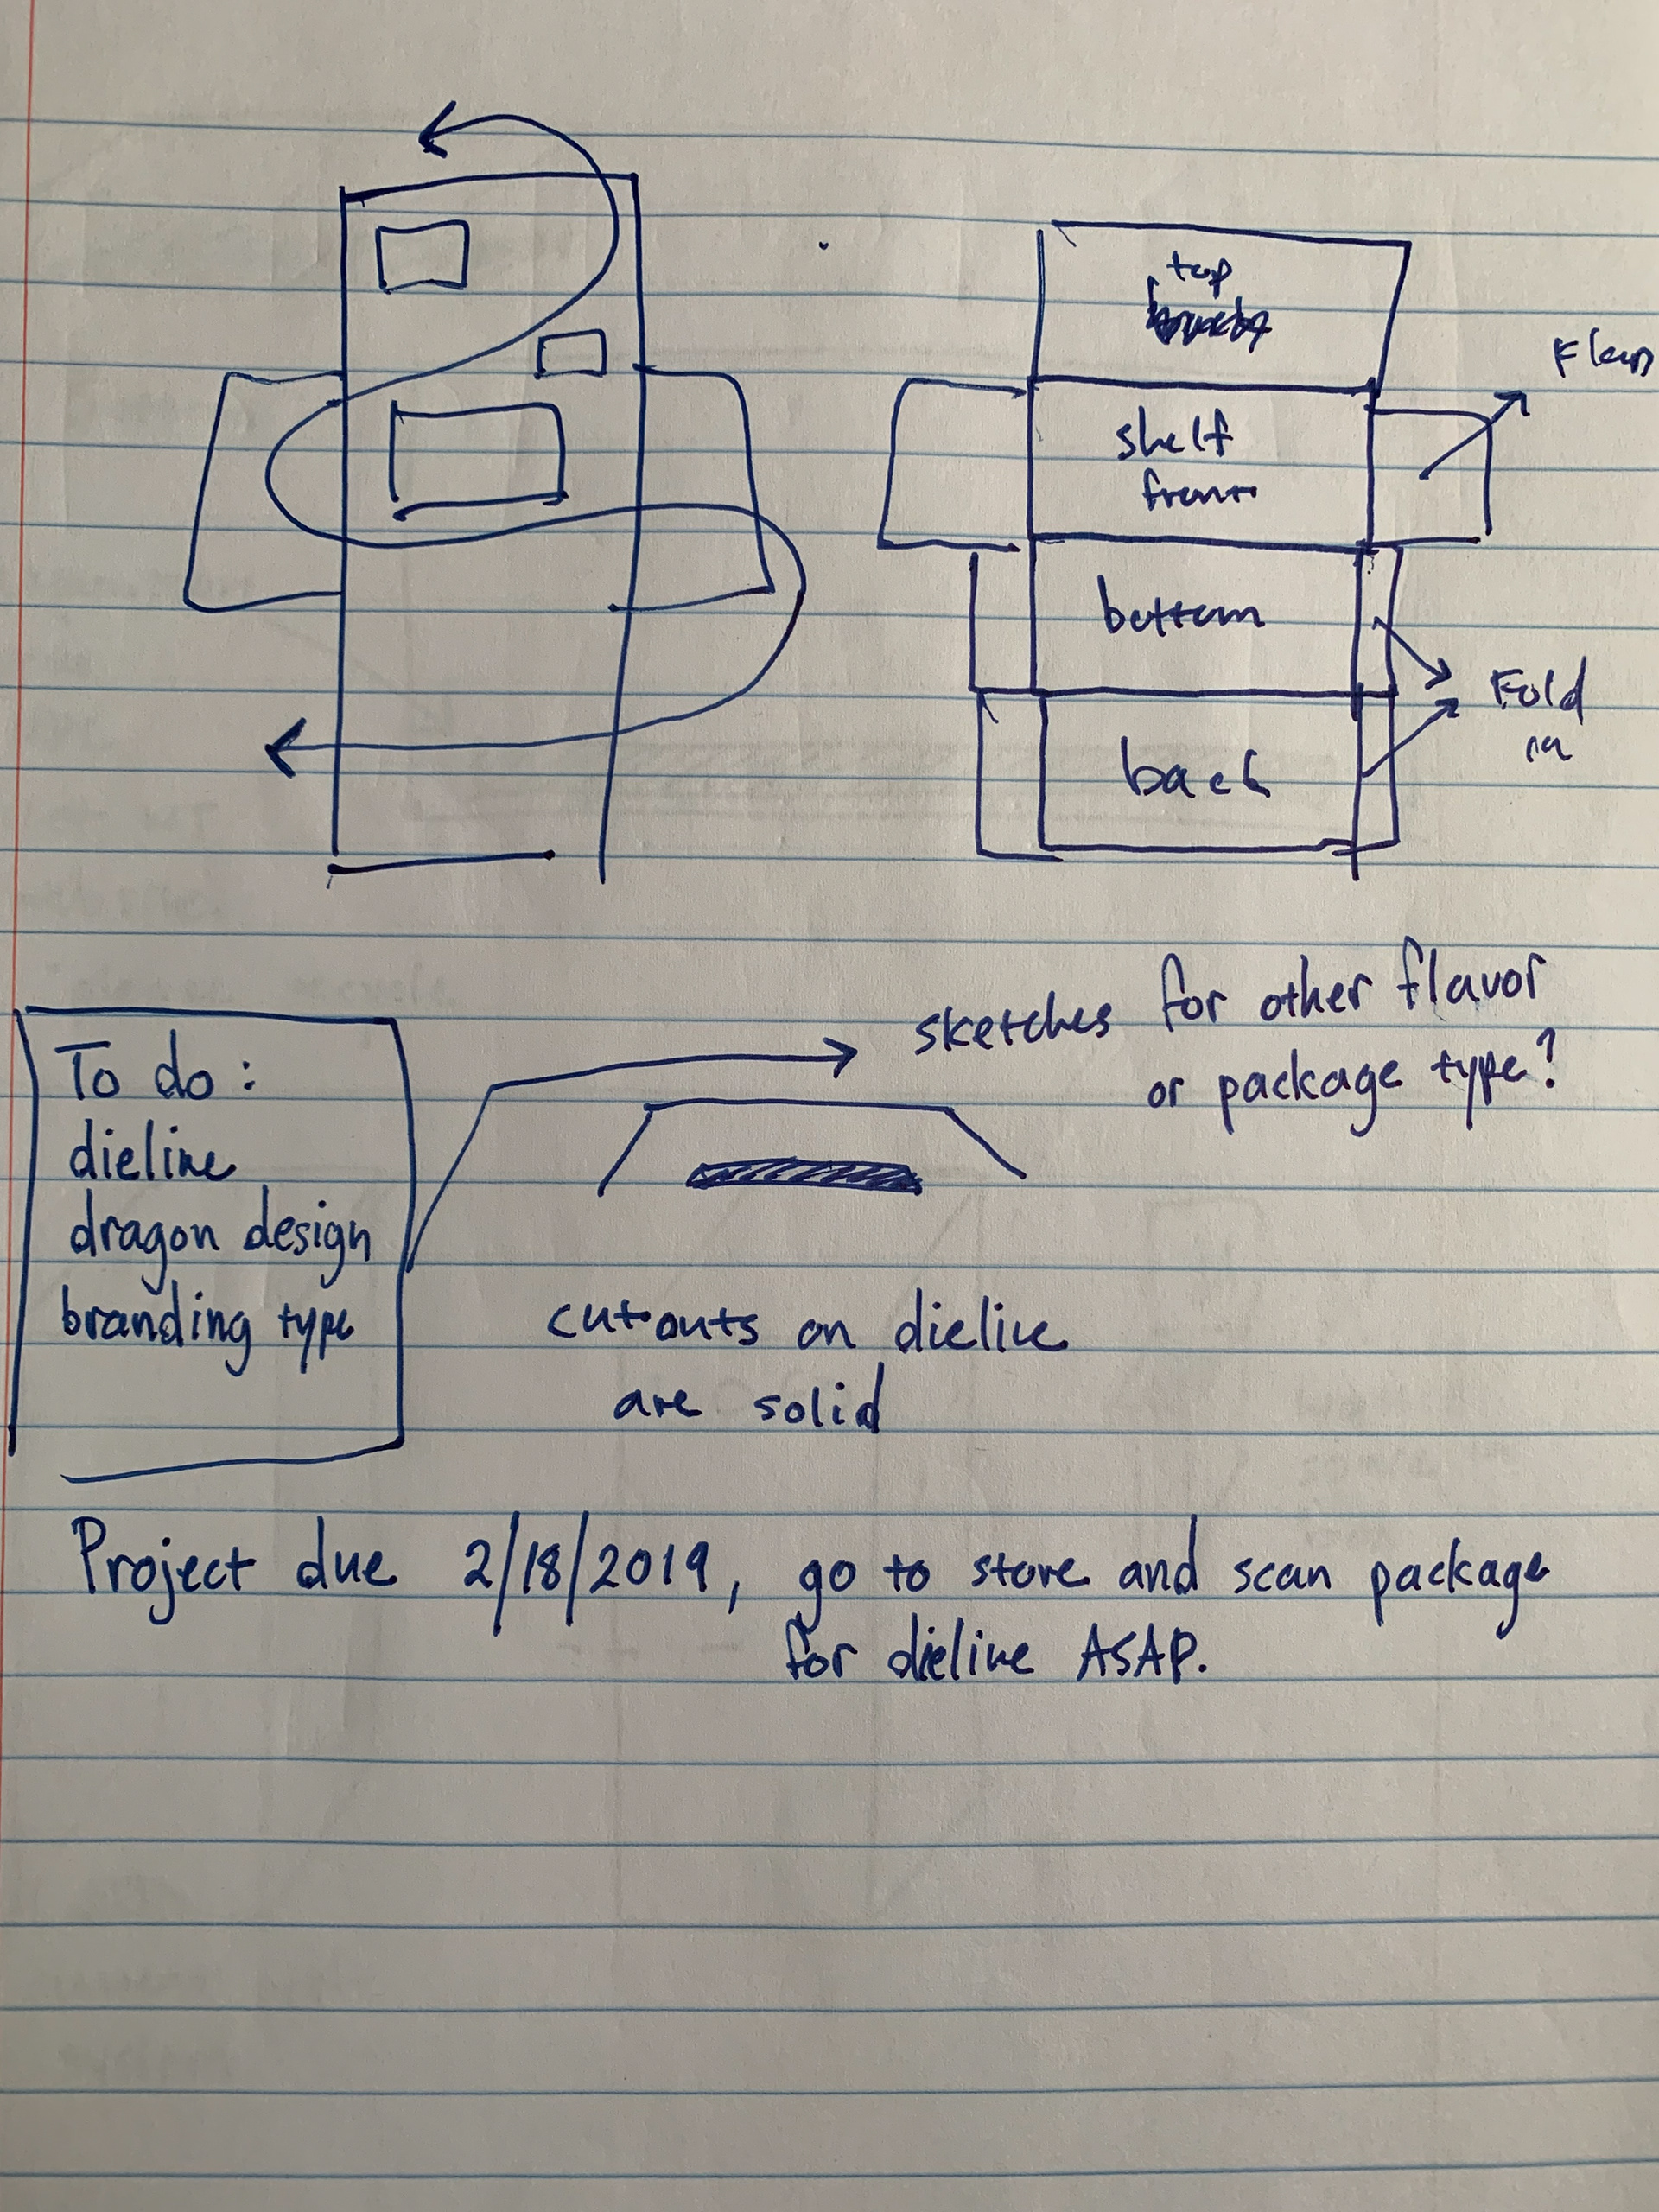 top
shelf
front
bottom
Fold
in
back
sketches for other flavor
or package type?
To do:
dieline
dragon design
branding type
cutouts on dieline
are solid
Project due 2/18/2019, go to store and scan package
for dieline ASAP.